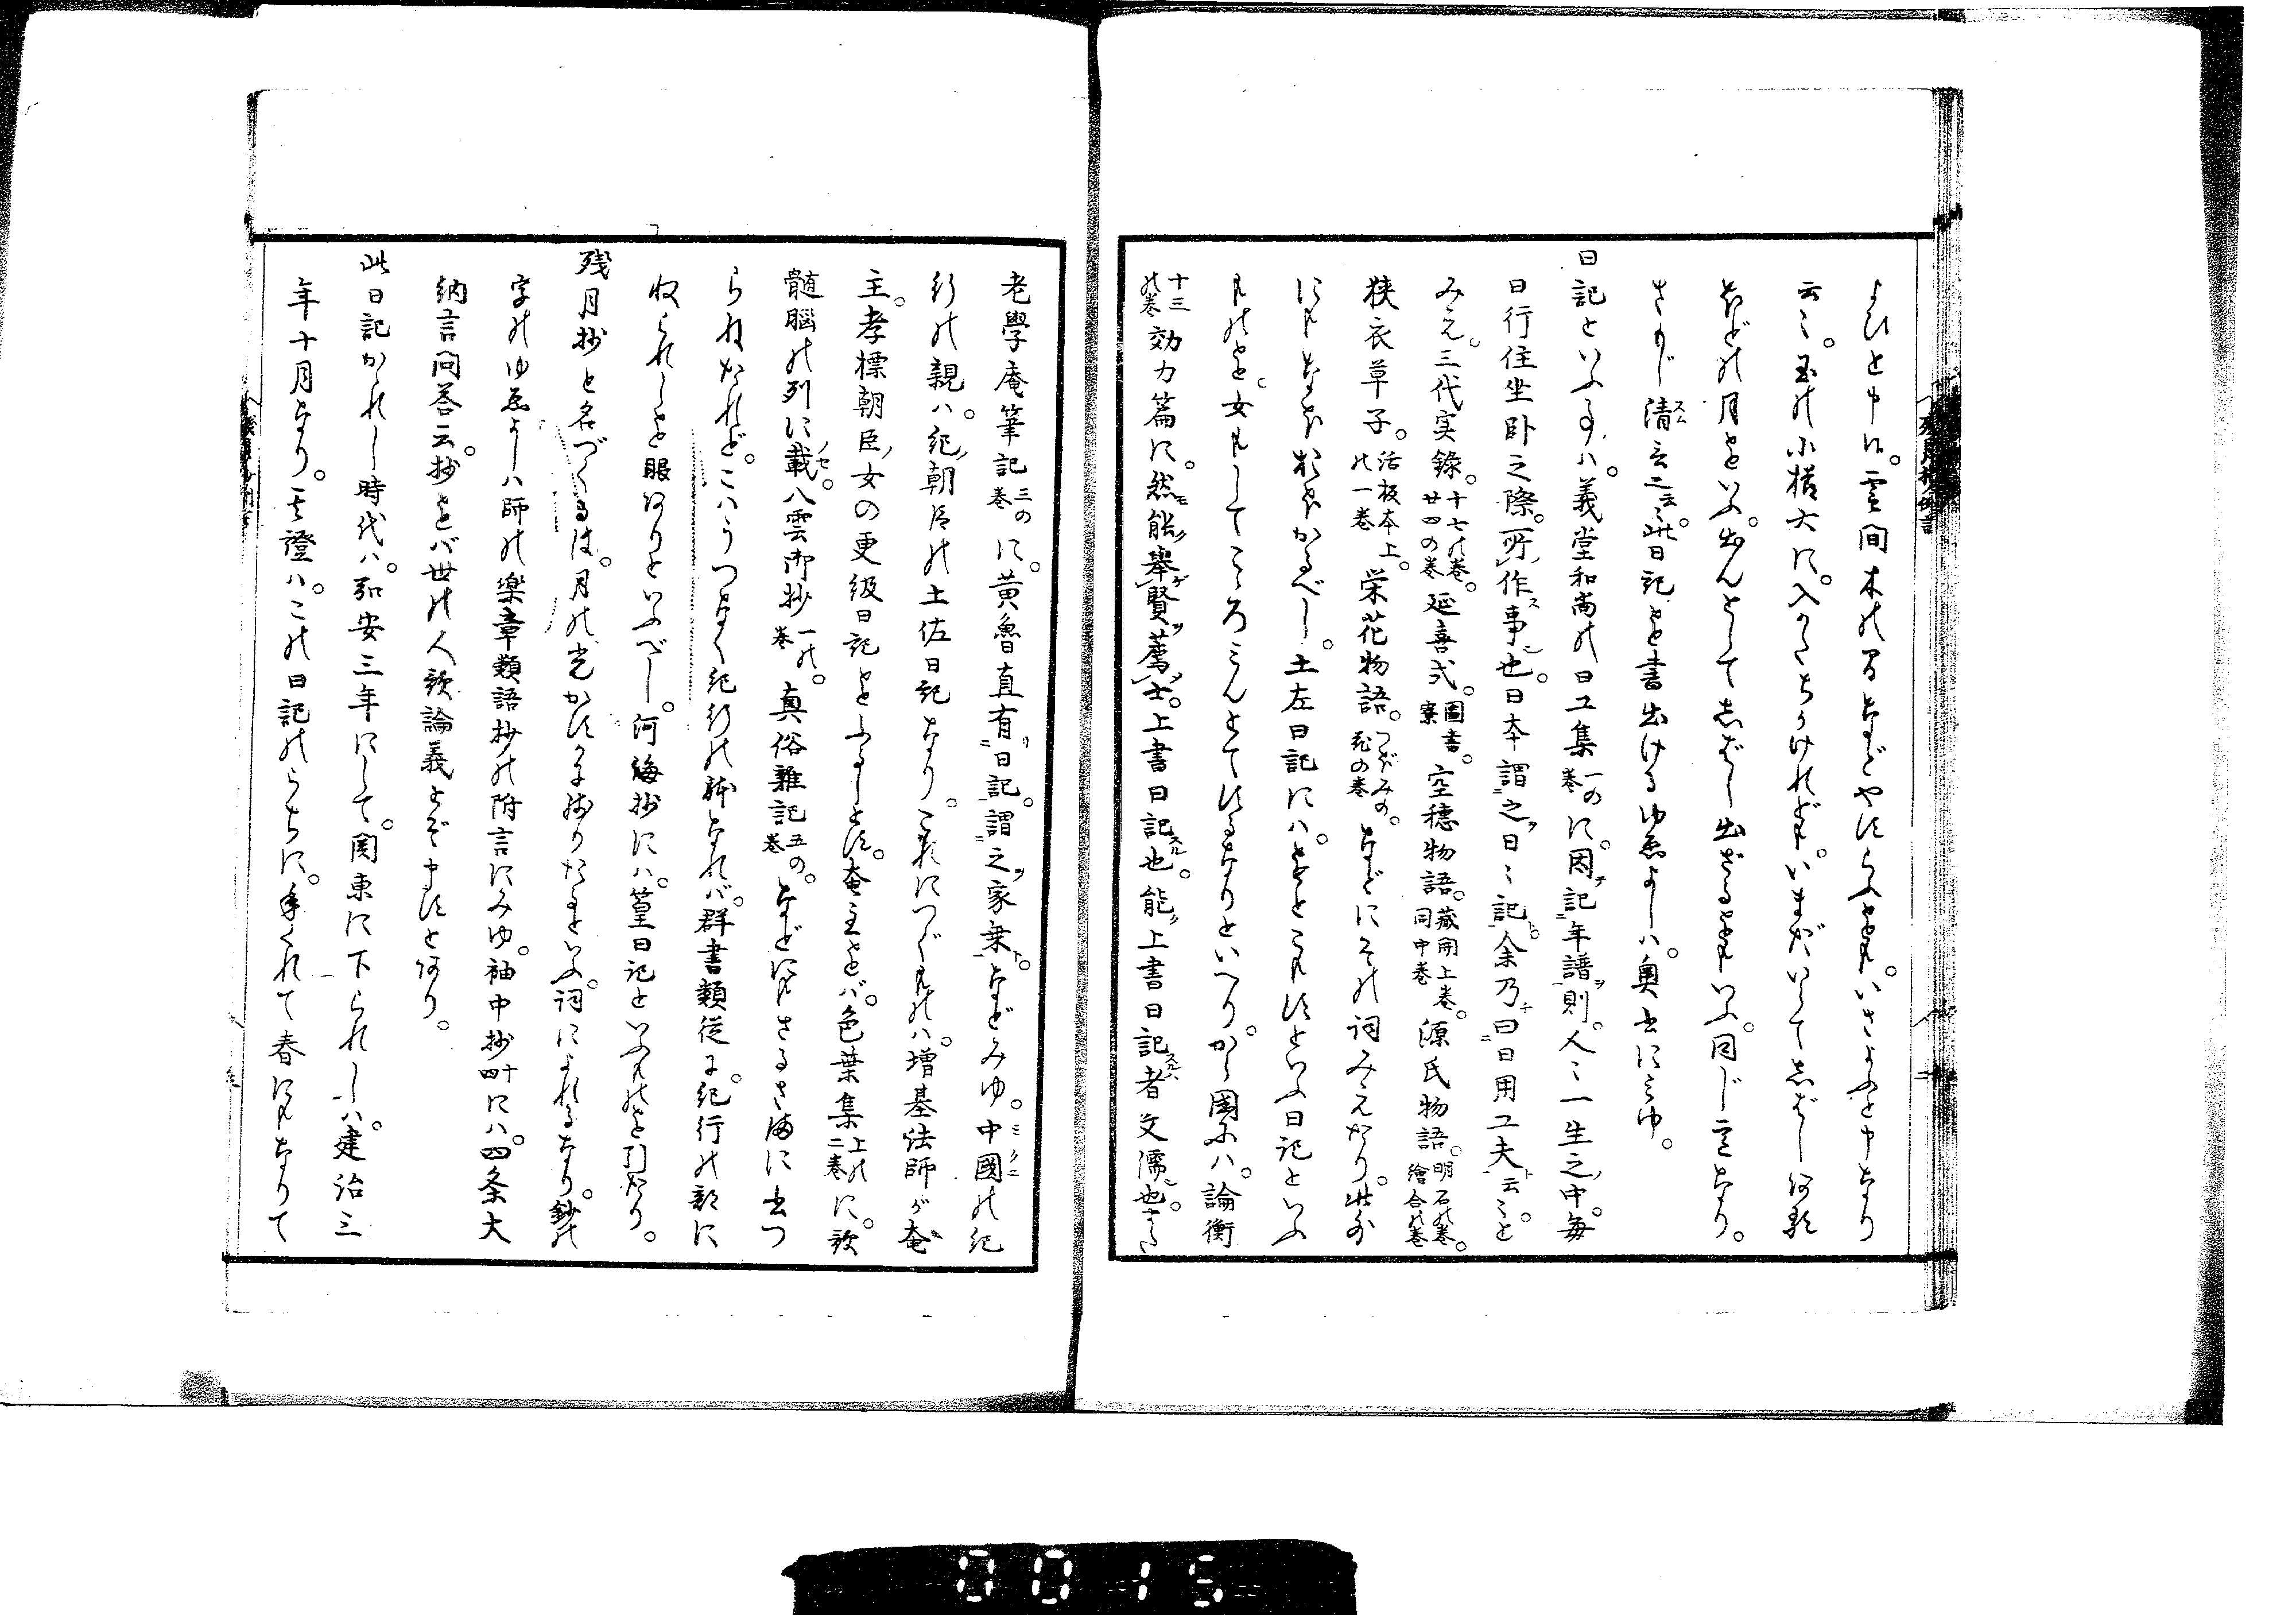 よひと申に。雲間木のるなどやすらへども。いさよふと申なり
云々。玉の小櫛六に。入かたちかけれども。いまだいらでしばしあるほ
どの月をいふ。出んとしてしばし出ざるをもいふ。同じ意なり。
さ 清 云々。此日記を書出けるゆゑよしハ。奥書にミゆ。
日記といふ事ハ。義堂和尚の日工集一の巻に。因テ記ニ年譜ヲ則。人々一生之ノ中。毎
日行住坐卧之際。所ノ作ス事ニ也。日本謂ニ之ヲ日々記ト。余乃チ曰ニ日用工夫ト云々と
みえ。三代実録。十七の巻。廿四の巻 延喜式。圖書。寮 空穂物語。蔵開上巻。同中巻 源氏物語。明石の巻。繪合の巻
狭衣草子。活板本上。の一巻 栄花物語。つぼみの。花の巻 などにその詞みえたり。此外
にもなほおほかるべし。土左日記にハ。をとこもすといふ日記といふ
ものを。女もしてこゝろミんとてするなりといへり。から國にハ。論衡
十三の巻 効力篇に。然モ能ク擧ゲ賢ヲ薦ム士ヲ。上書日記スル也。能ク上書日記スル者ハ文儒也。また
老學庵筆記三の巻に。黄魯直有リニ日記。謂ニ之ヲ家乗ト。などみゆ。中國ミクニの紀
行の親ハ。紀ノ朝臣の土佐日記なり。これにつぐものハ。増基法師が菴
主。孝標朝臣ノ女の更級日記をふるしとす。菴主をバ。色葉集上の二巻に。歌
髄腦の列に載ノセ。八雲御抄一の。巻 真俗雜記五の。巻 などにもさるさまに出つ
らねたれど。こハうつなく紀行の躰なれバ。群書類従に。紀行の部に
收られしを眼ありといふべし。河海抄にハ。篁日記といふものを引たり。
残月抄と名づくるは。月の光かすかに残りたるをいふ。詞によれるなり。鈔の
字のゆゑよしハ師の樂章類語抄の附言にみゆ。袖中抄十四にハ。四条大
納言問荅云。抄をバ世の人歌論義とぞ申すとあり。
此日記かゝれし時代ハ。弘安三年にして。関東に下られしハ。建治三
年十月なり。其證ハ。この日記のうちに。年くれて春にもなりて